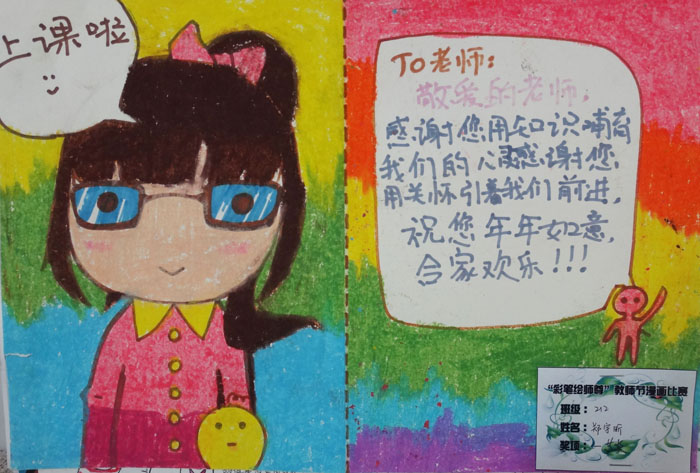 上课啦
TO老师：
敬爱的老师，
感谢您用知识哺育
我们的心感谢您
用关怀引着我们前进，
祝您年年如意，
合家欢乐!!!
“彩笔绘师尊”教师节漫画比赛
班级：212
姓名：郑宇昕
奖项：